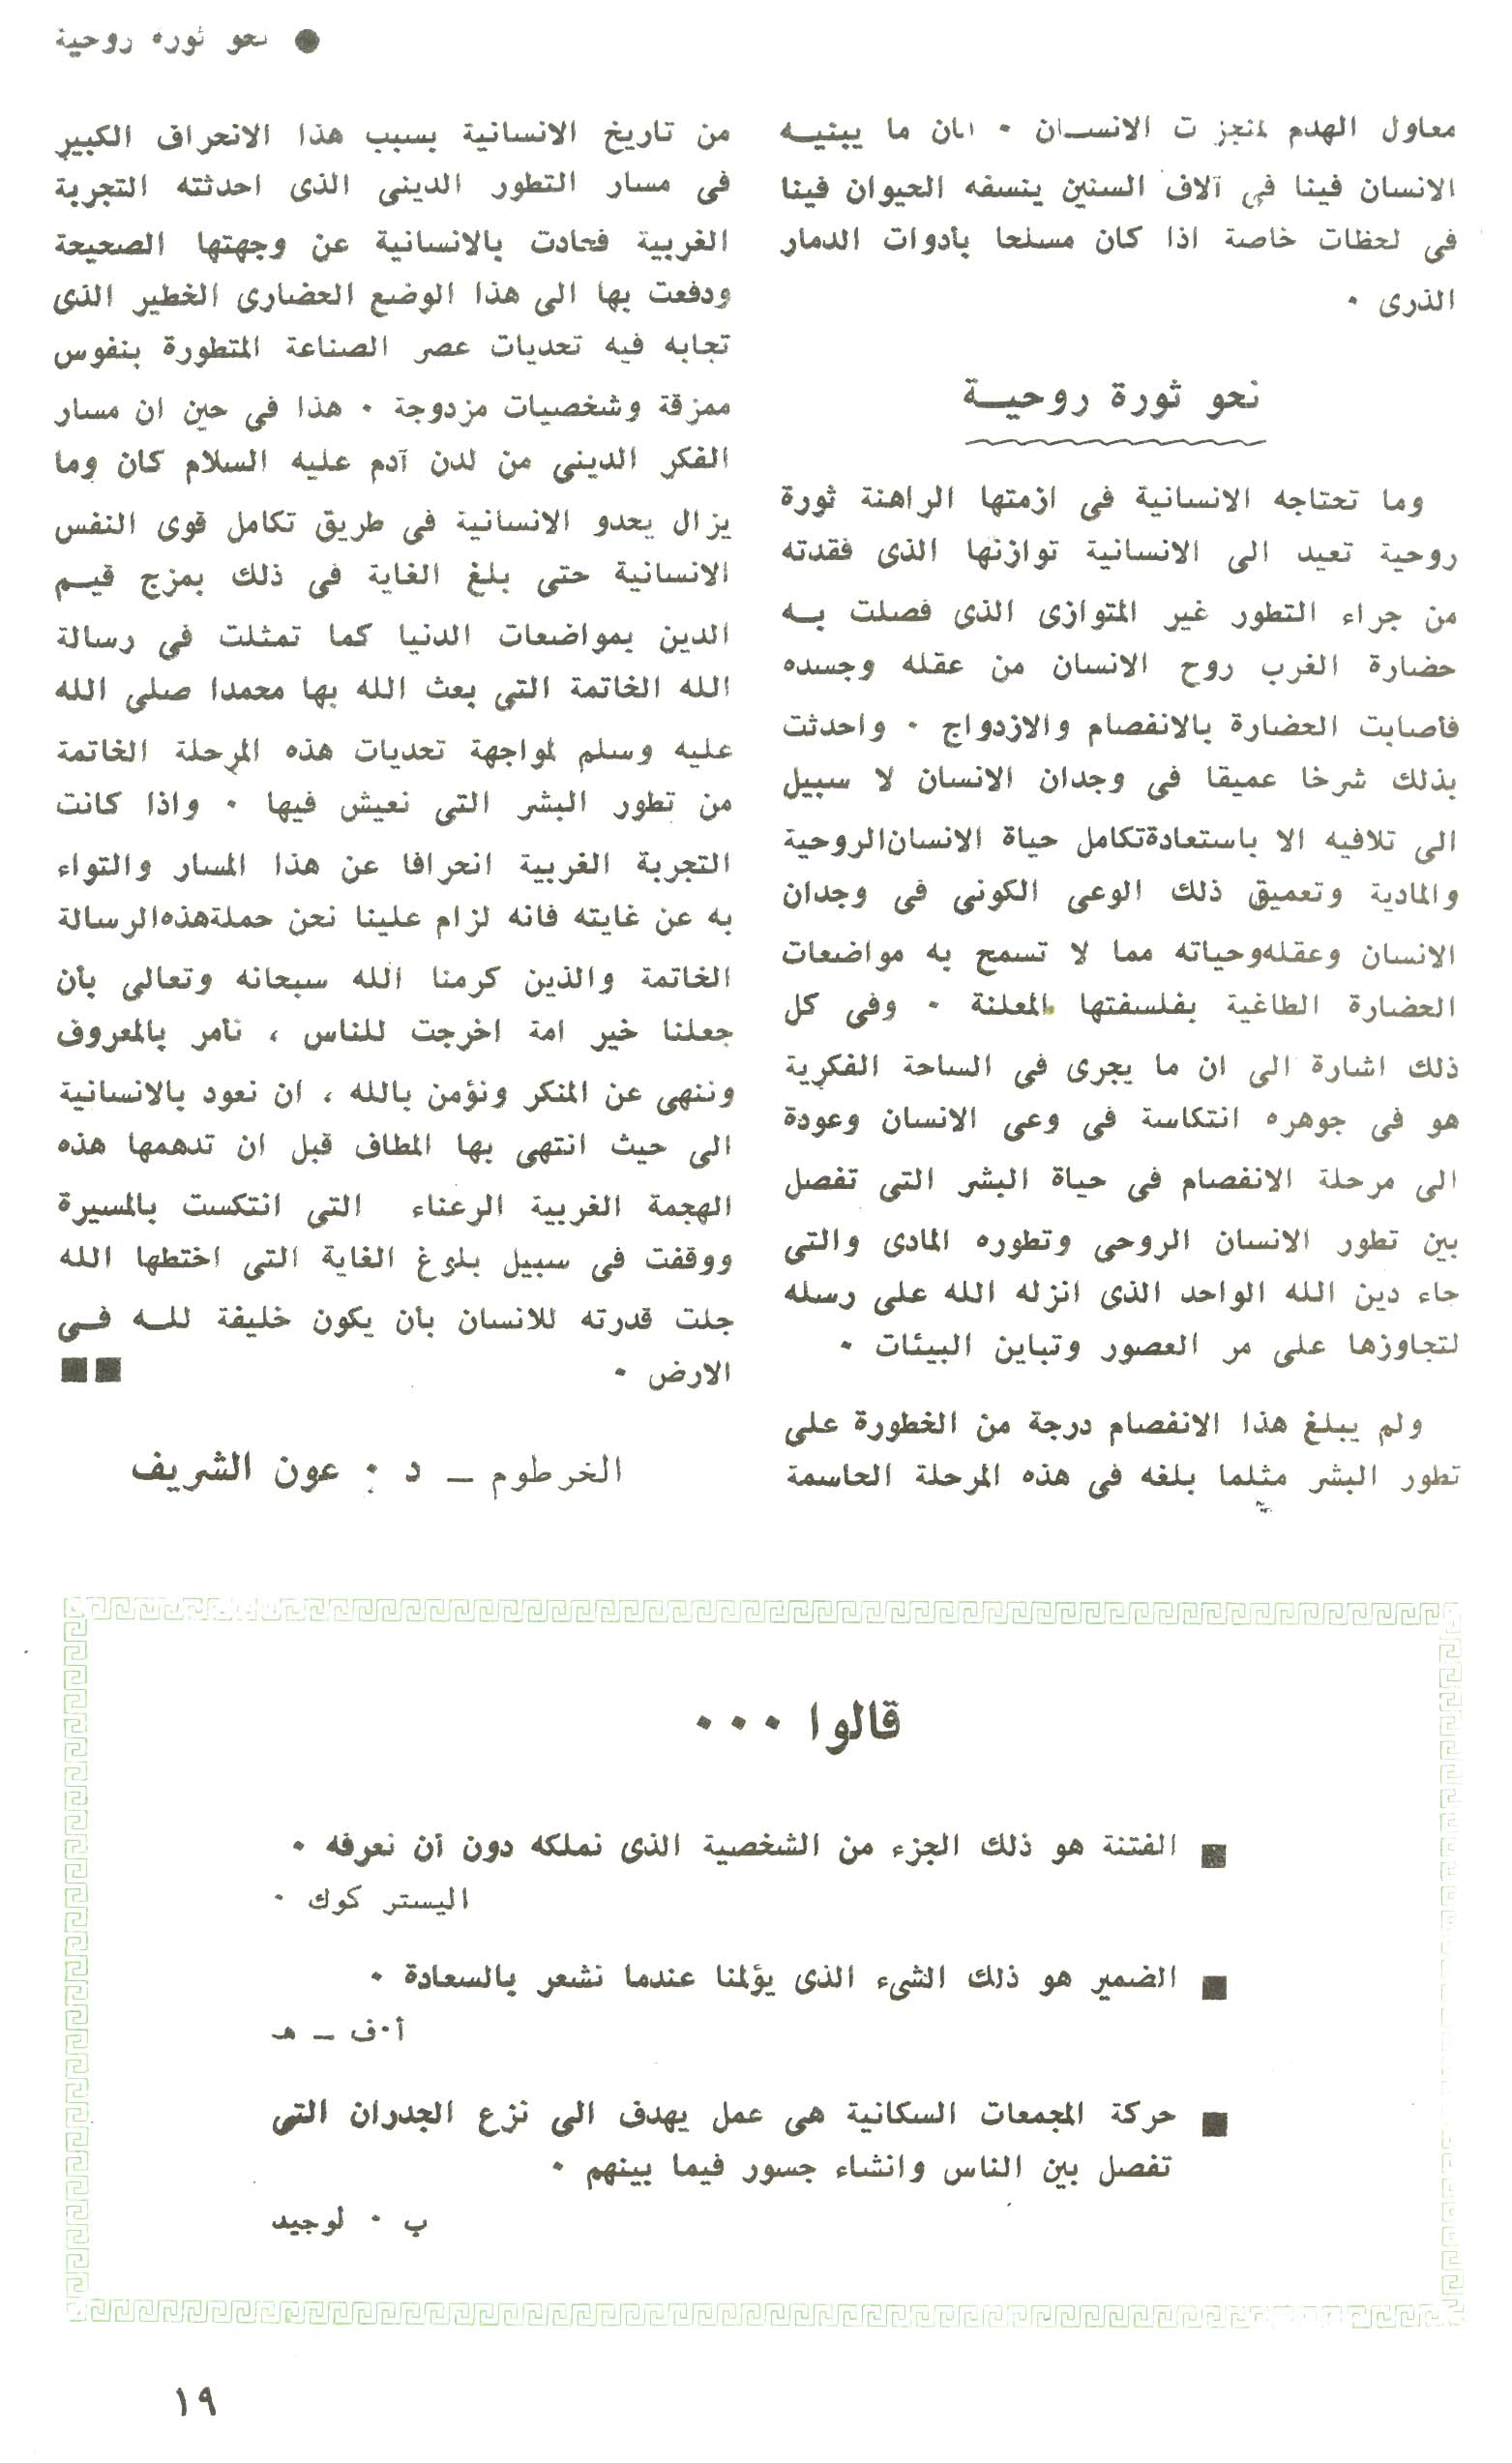 ● نحو ثورة روحية
معاول الهدم لمنجزات الانســان ٠ ما يبنيــه
الانسان فينا فى آلاف السنين ينسفه الحيوان فينا
فى لحظات خاصة اذا كان مسلحا بأدوات الدمار
الذرى ٠
نحو ثورة روحيــة
وما تحتاجه الانسانية فى ازمتها الراهنة ثورة
روحية تعيد الى الانسانية توازنها الذى فقدته
من جراء التطور غير المتوازى الذى فصلت بــه
حضارة الغرب روح الانسان من عقله وجسده
فأصابت الحضارة بالانفصام والازدواج ٠ واحدثت
بذلك شرخا عميقا فى وجدان الانسان لا سبيل
الى تلافيه الا باستعادةتكامل حياة الانسانالروحية
والمادية وتعميق ذلك الوعى الكونى فى وجدان
الانسان وعقلهوحياته مما لا تسمح به مواضعات
الحضارة الطاغية بفلسفتها المعلنة ٠ وفى كل
ذلك اشارة الى ان ما يجرى فى الساحة الفكرية
هو فى جوهره انتكاسة فى وعى الانسان وعودة
الى مرحلة الانفصام فى حياة البشر التى تفصل
بين تطور الانسان الروحى وتطوره المادى والتى
جاء دين الله الواحد الذى انزله الله على رسله
لتجاوزها على مر العصور وتباين البيئات ٠
ولم يبلغ هذا الانفصام درجة من الخطورة على
تطور البشر مثلما بلغه فى هذه المرحلة الحاسمة
من تاريخ الانسانية بسبب هذا الانحراف الكبير
فى مسار التطور الدينى الذى احدثته التجربة
الغربية فحادت بالانسانية عن وجهتها الصحيحة
ودفعت بها الى هذا الوضع الحضارى الخطير الذى
تجابه فيه تحديات عصر الصناعة المتطورة بنفوس
ممزقة وشخصيات مزدوجة ٠ هذا فى حين ان مسار
الفكر الدينى من لدن آدم عليه السلام كان وما
يزال يحدو الانسانية فى طريق تكامل قوى النفس
الانسانية حتى بلغ الغاية فى ذلك بمزج قيــم
الدين بمواضعات الدنيا كما تمثلت فى رسالة
الله الخاتمة التى بعث الله بها محمدا صلى الله
عليه وسلم لمواجهة تحديات هذه المرحلة الخاتمة
من تطور البشر التى نعيش فيها ٠ واذا كانت
التجربة الغربية انحرافا عن هذا المسار والتواء
به عن غايته فانه لزام علينا نحن حملةهذهالرسالة
الخاتمة والذين كرمنا الله سبحانه وتعالى بأن
جعلنا خير امة اخرجت للناس ، نأمر بالمعروف
وننهى عن المنكر ونؤمن بالله ، ان نعود بالانسانية
الى حيث انتهى بها المطاف قبل ان تدهمها هذه
الهجمة الغربية الرعناء التى انتكست بالمسيرة
ووقفت فى سبيل بلوغ الغاية التى اختطها الله
جلت قدرته للانسان بأن يكون خليفة للــه فــى
الارض ٠ ■■
الخرطوم ــ د ٠ عون الشريف
قالوا ٠٠٠
■ الفتنة هو ذلك الجزء من الشخصية الذى نملكه دون أن نعرفه ٠
اليستر كوك ٠
■ الضمير هو ذلك الشىء الذى يؤلمنا عندما نشعر بالسعادة ٠
أ٠ف ــ هـ
■ حركة المجمعات السكانية هى عمل يهدف الى نزع الجدران التى
تفصل بين الناس وانشاء جسور فيما بينهم ٠
ب ٠ لوجيد
١٩